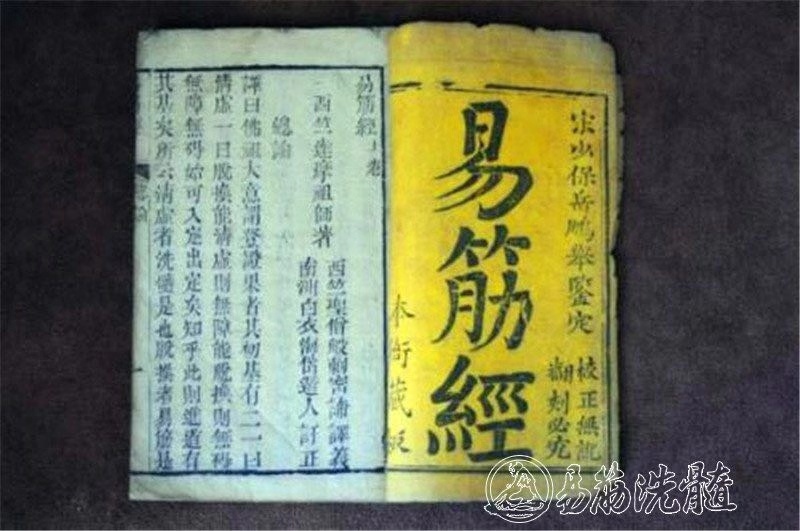 宋少保岳鵬舉鑒定
校正無訛
翻刻必究
易筋經
本衙藏板
易筋經上卷
西竺達摩祖師著
西竺聖僧般剌密諦譯義
南洲白衣海岱遊人訂正
總論
譯曰佛祖大意謂登證果者其初基有二一曰
清虛一曰脫換能清虛則無障能脫換則無碍
無障無碍始可入定出定矣知乎此則進道有
其基矣所云清虛者洗髓是也脫換者易筋是
易筋洗髓